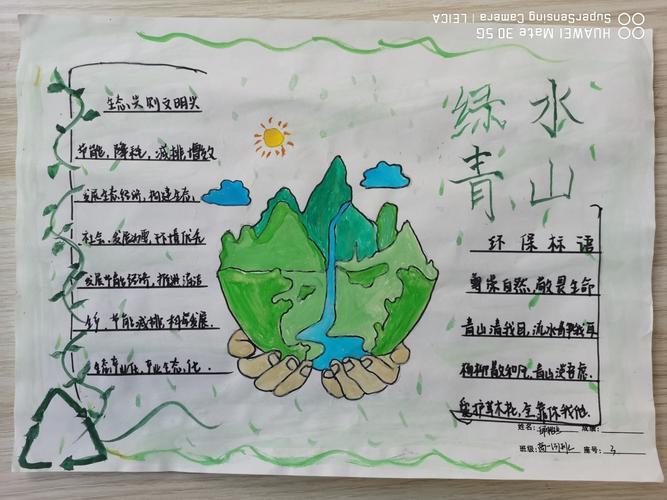 HUAWEI Mate 30 5G
SuperSensing Camera | LEICA
绿水
青山
生态兴则文明兴
节能,降耗,减排,增效
发展生态经济,构建生态
社会.发展 环境优先
发展节能经济,推进清洁
生产,节能减排,构 发展.
生态产业化,产业生态化.
环保标语
尊崇自然,敬畏生命
青山清我目,流水静我耳
爱护草木花,全靠你我他.
姓名:
成绩:
班级:
座号:3